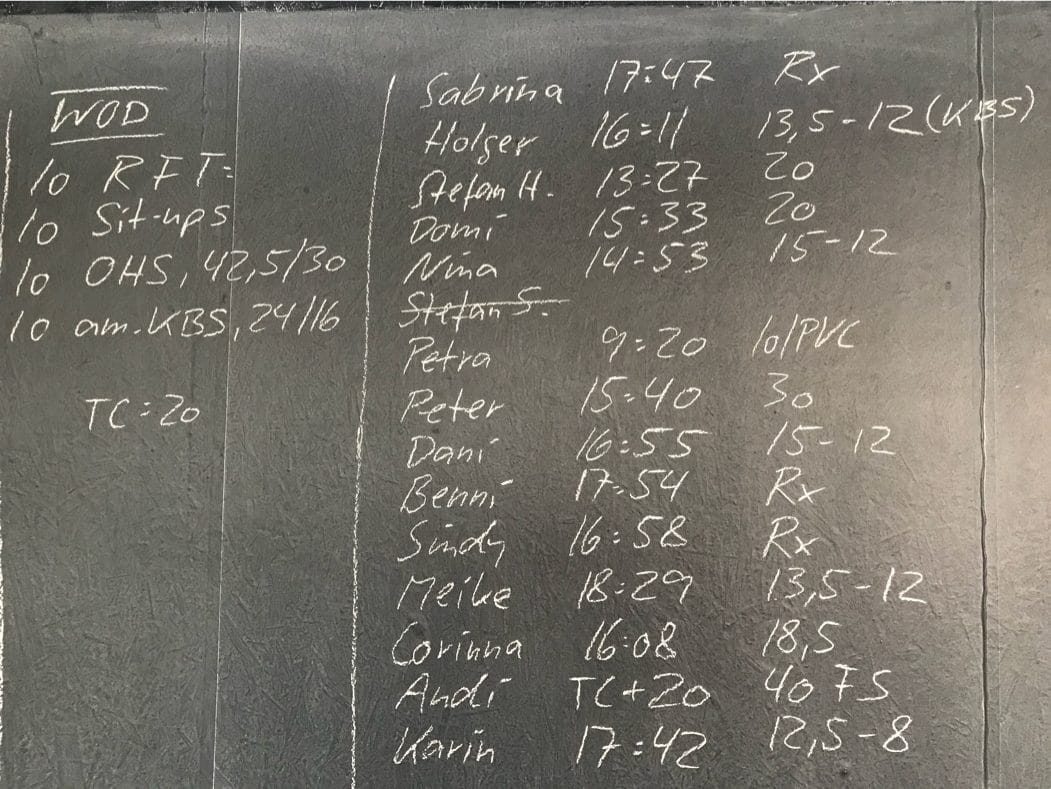 WOD
10 RFT:
10 Sit-ups
10 OHS, 42,5/30
10 am. KBS, 24/16
TC: 20
Sabrina 17:47 Rx
Holger 16:11 13,5-12 (KBS)
Stefan H. 13:27 20
Domi 15:33 20
Nina 14:53 15-12
Stefan S.
Petra 9:20 10/PVC
Peter 15:40 30
Dani 16:55 15-12
Benni 17:54 Rx
Sindy 16:58 Rx
Meike 18:29 13,5-12
Corinna 16:08 18,5
Andi TC+20 40 FS
Karin 17:42 12,5-8